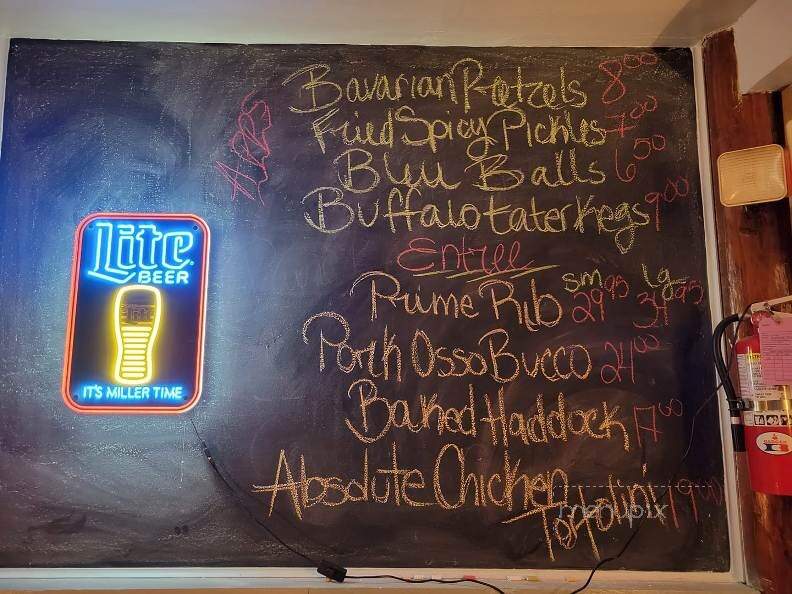 APPS
Bavarian Pretzels 8.00
Fried Spicy Pickles 7.00
Bleu Balls 6.50
Buffalo tater Kegs 9.00
Entree
sm lg
Prime Rib 29.95 34.95
Pork Osso Bucco 24.00
Baked Haddock 17.00
Absolute Chicken
Tortolini 19.00
Lite
BEER
IT'S MILLER TIME
menupix